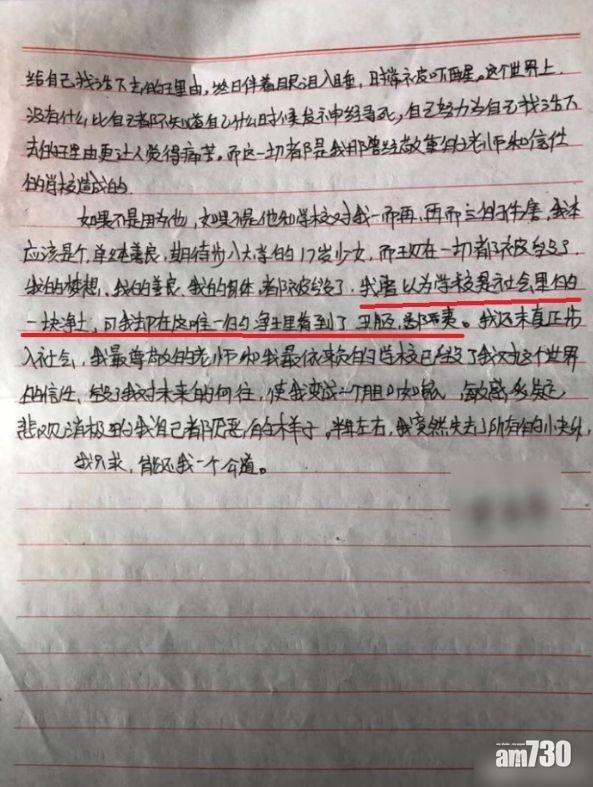 给自己找活下去的理由,终日伴着眼泪入睡,时常被吓醒。这个世界上
没有什么比自己都不知道自己什么时候发神经寻死,自己努力为自己找活下
去的理由更让人觉得痛苦。而这一切都是我那曾经敬重的老师和信任
的学校造成的。
如果不是因为他,如果不是他和学校对我一而再、再而三的伤害,我本
应该是个单纯善良,期待步入大学的17岁少女,而现在一切都被毁了。
我的梦想、我的善良、我的身体,都被毁了。我以为学校是社会里的
一块净土,可我却在这唯一的净土里看到了。我还未真正步
入社会,我最尊敬的老师和我最依赖的学校已毁了我对这个世界
的信任,毁了我对未来的向往,使我变成一个胆小如鼠,敏感多疑
悲观消极的我自己都厌恶的样子。半年左右,我突然失去了所有的小
我只求,能还我一个公道。
am730